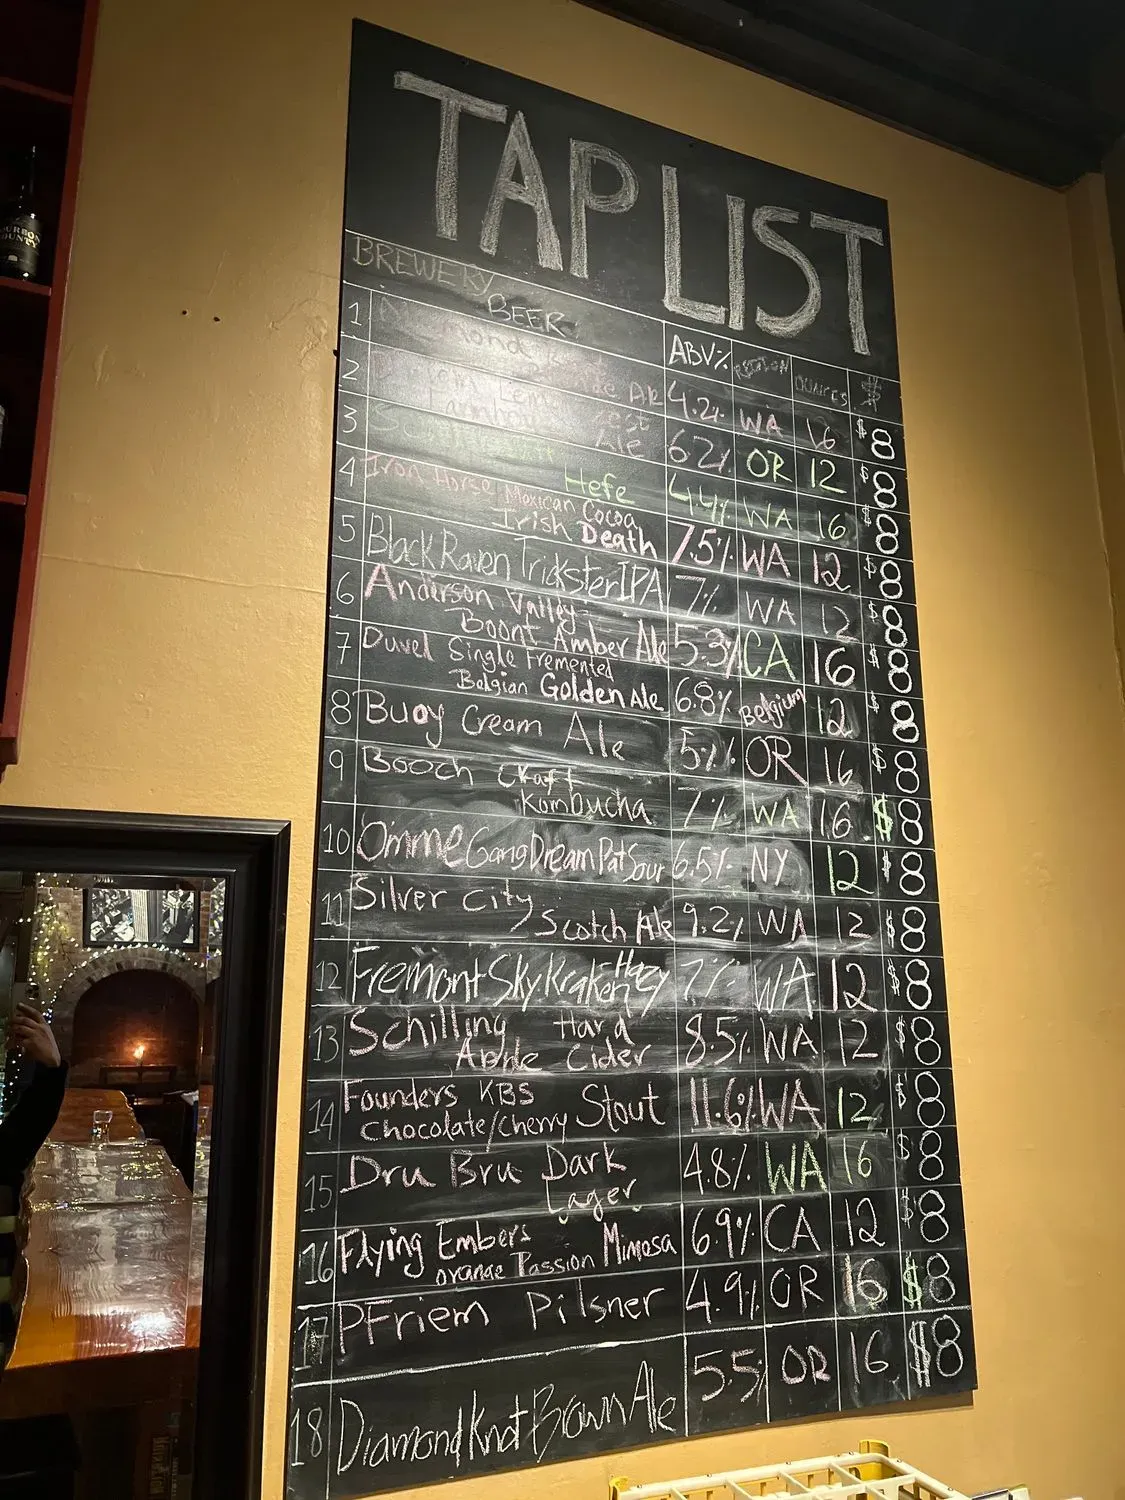 TAP LIST
BREWERY BEER ABV% REGION OUNCES $
1 4.2% WA 16 $8
2 Ale 6.2% OR 12 $8
3 Hefe 4.4% WA 16 $8
4 Iron Horse Mexican Cocoa
Irish Death 7.5% WA 12 $8
5 Black Raven Trickster IPA 7% WA 12 $8
6 Anderson Valley
Boont Amber Ale 5.3% CA 16 $8
7 Duvel Single Fremented
Belgian Golden Ale 6.8% Belgium 12 $8
8 Buoy Cream Ale 5% OR 16 $8
9 Booch Craft
Kombucha 7% WA 16 $8
10 OmmeGang Dream Pat Sour 6.5% NY 12 $8
11 Silver City
Scotch Ale 9.2% WA 12 $8
12 Fremont Sky Kraken Hazy 7% WA 12 $8
13 Schilling Hard
Apple Cider 8.5% WA 12 $8
14 Founders KBS
Chocolate/Cherry Stout 11.6% WA 12 $8
15 Dru Bru Dark
Lager 4.8% WA 16 $8
16 Flying Embers
orange Passion Mimosa 6.9% CA 12 $8
17 PFriem Pilsner 4.9% OR 16 $8
18 Diamond Knot Brown Ale 5.5% OR 16 $8